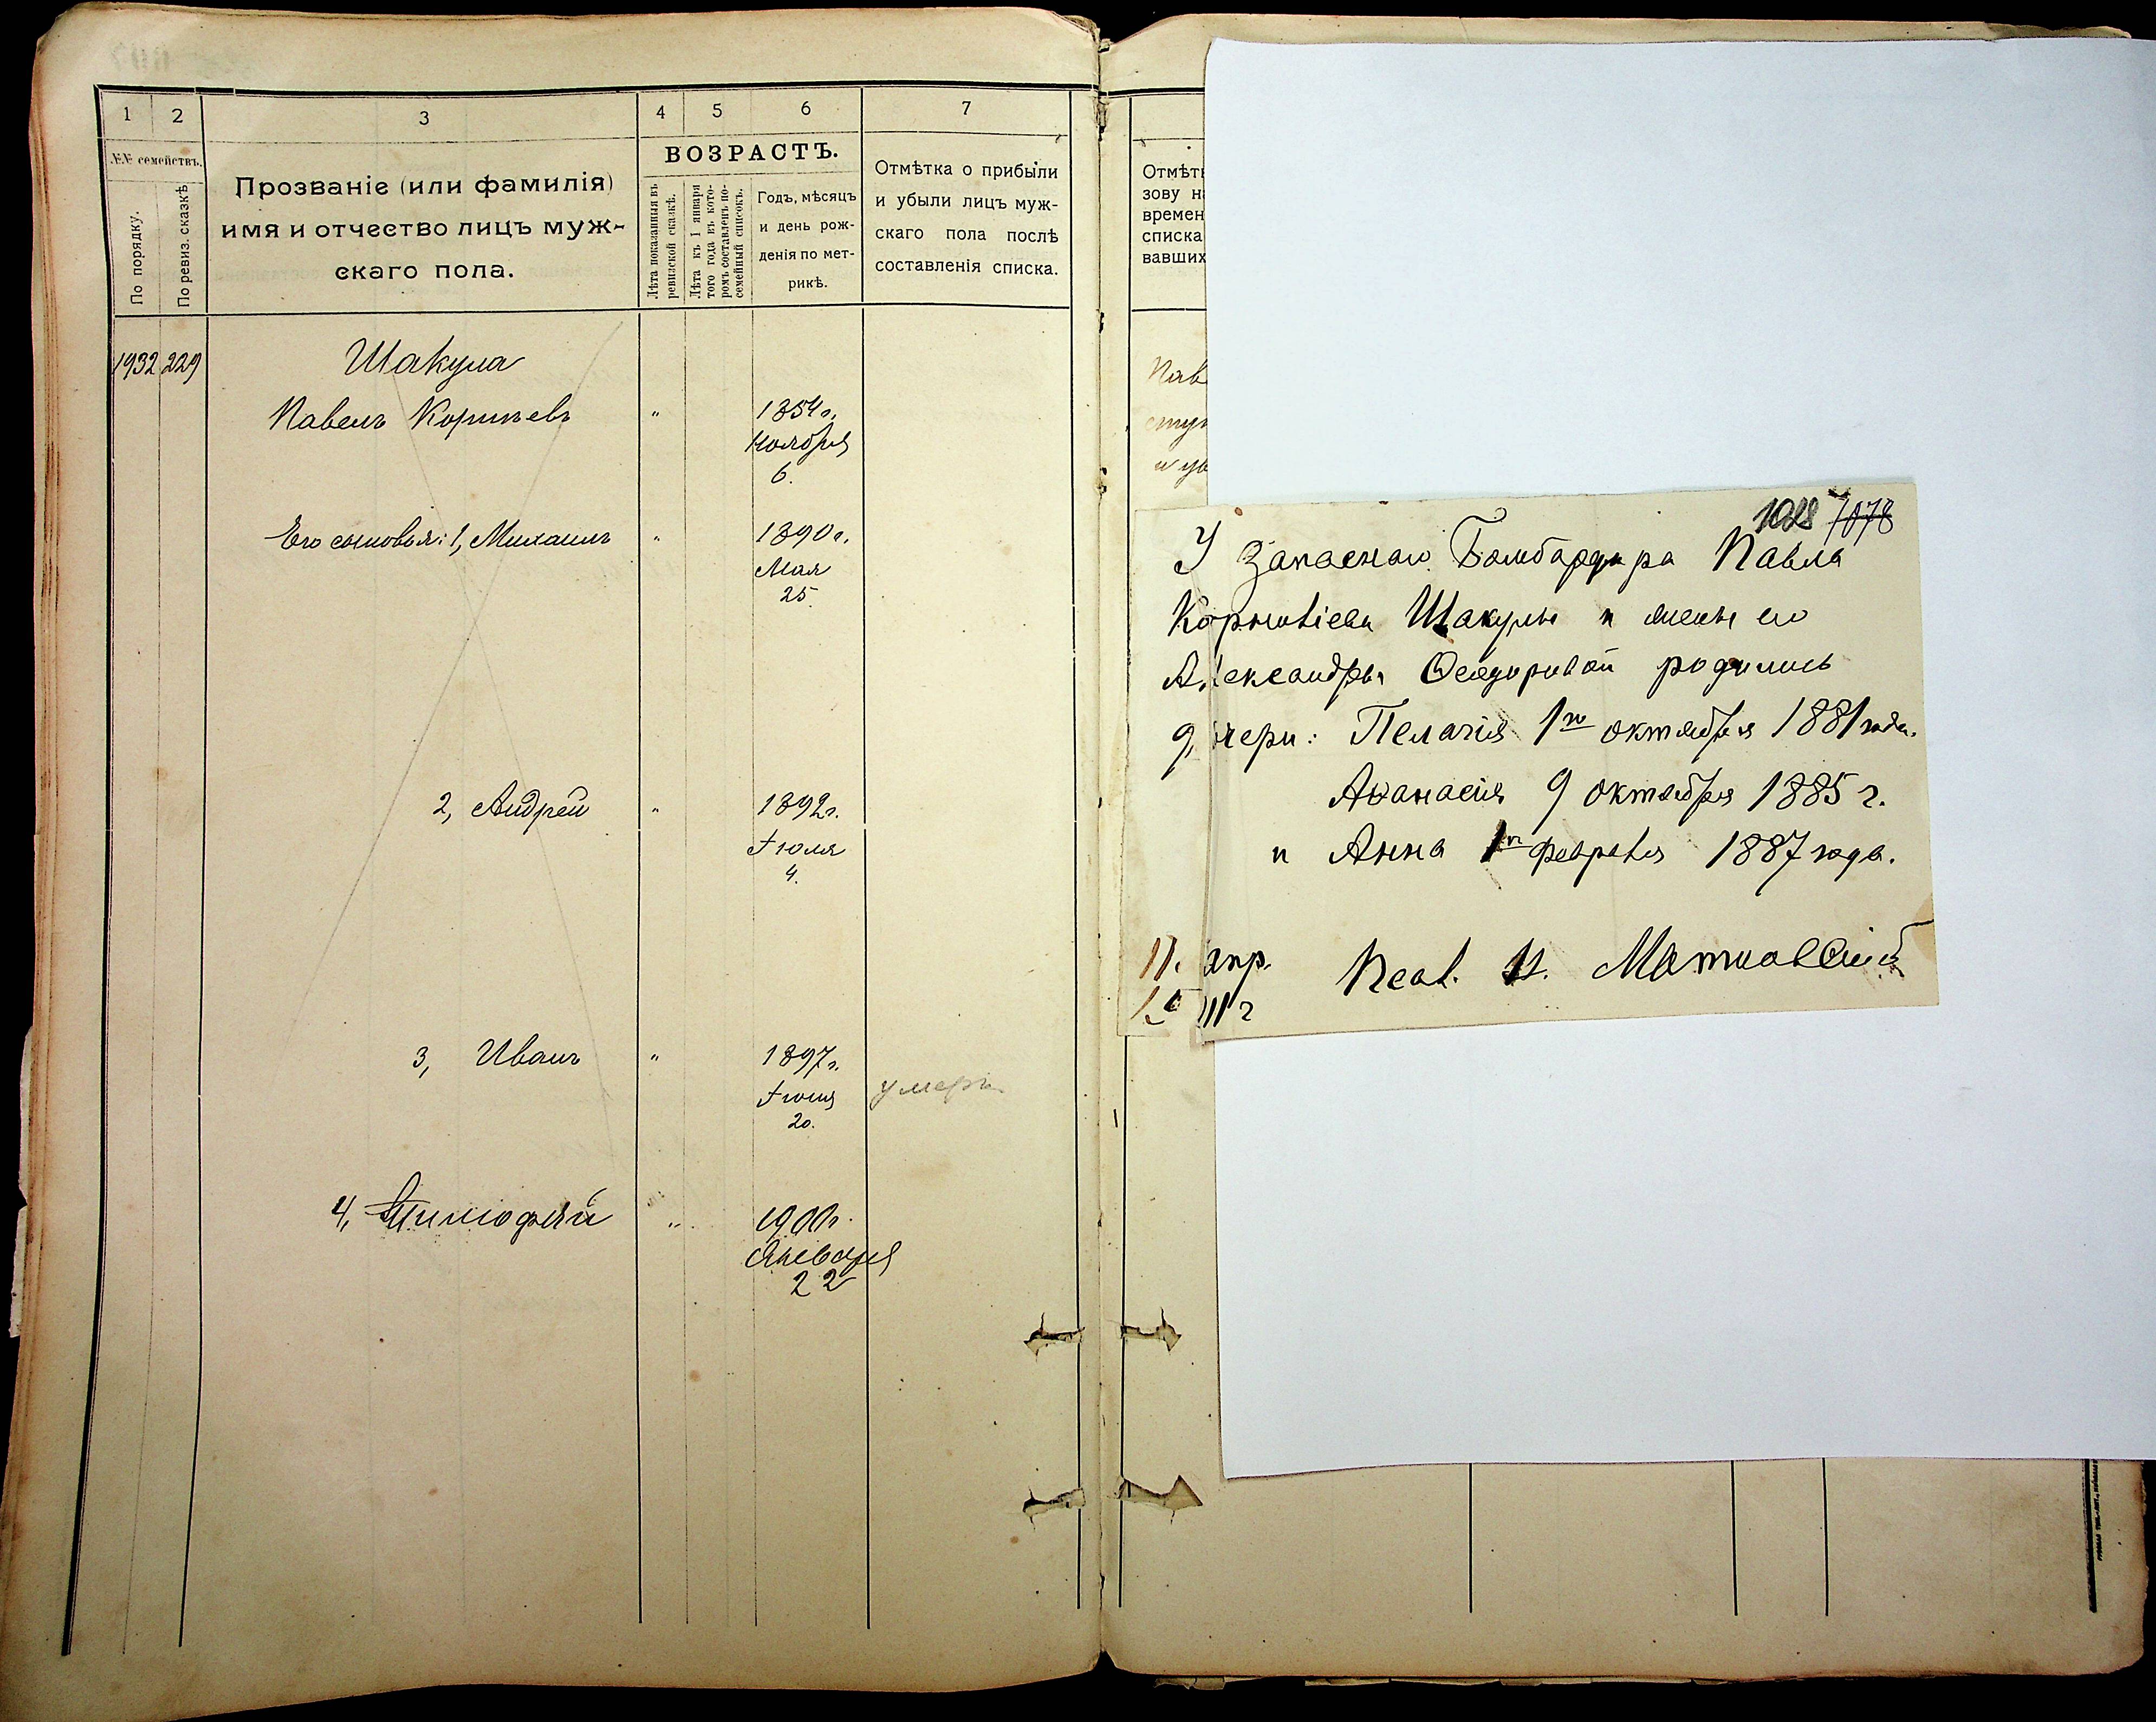 1 2 3 4 5 6 7
№№ семействъ.
По порядку.
По ревиз. сказкѣ
Прозваніе (или фамилія)
имя и отчество лицъ муж-
скаго пола.
ВОЗРАСТЪ.
Лѣта показанныя въ
ревизской сказкѣ.
Лѣта къ 1 января
того года въ кото-
ромъ составленъ по-
семейный списокъ.
Годъ, мѣсяцъ
и день рож-
денія по мет-
рикѣ.
Отмѣтка о прибыли
и убыли лицъ муж-
скаго пола послѣ
составленія списка.
1932 229 Шакула
Павелъ Корнѣевъ " 1854 г.
Ноября
6.
Его сыновья: 1, Михаилъ " 1890 г.
Мая
25.
2, Андрей " 1892 г.
Іюля
4.
3, Иванъ " 1897 г.
Іюня
20.
умеръ
4, Тимофей " 1900 г.
Января
22
Отмѣт
зову н
времен
списка
вавших
Пав
сту
и ув
1028 1078
У запаснаго Бомбардира Павла
Корнилиева Шакулы и жены его
Александры Ѳеодоровой родились
дочери: Пелагія 1го октября 1881 года.
Аѳанасія 9 октября 1885 г.
и Анна 1го февраля 1887 года.
11. апр.
Псал. И.